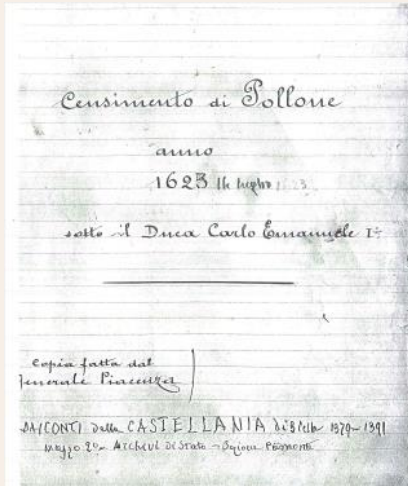 Censimento di Pollone
anno
1623 14 luglio 1623
sotto il Duca Carlo Emanuele I°
Copia fatta dal
Generale Piacenza
CONTI della CASTELLANIA di Biella 1379-1391
Mazzo 2° Archivi di Stato - Sezione PIEMONTE